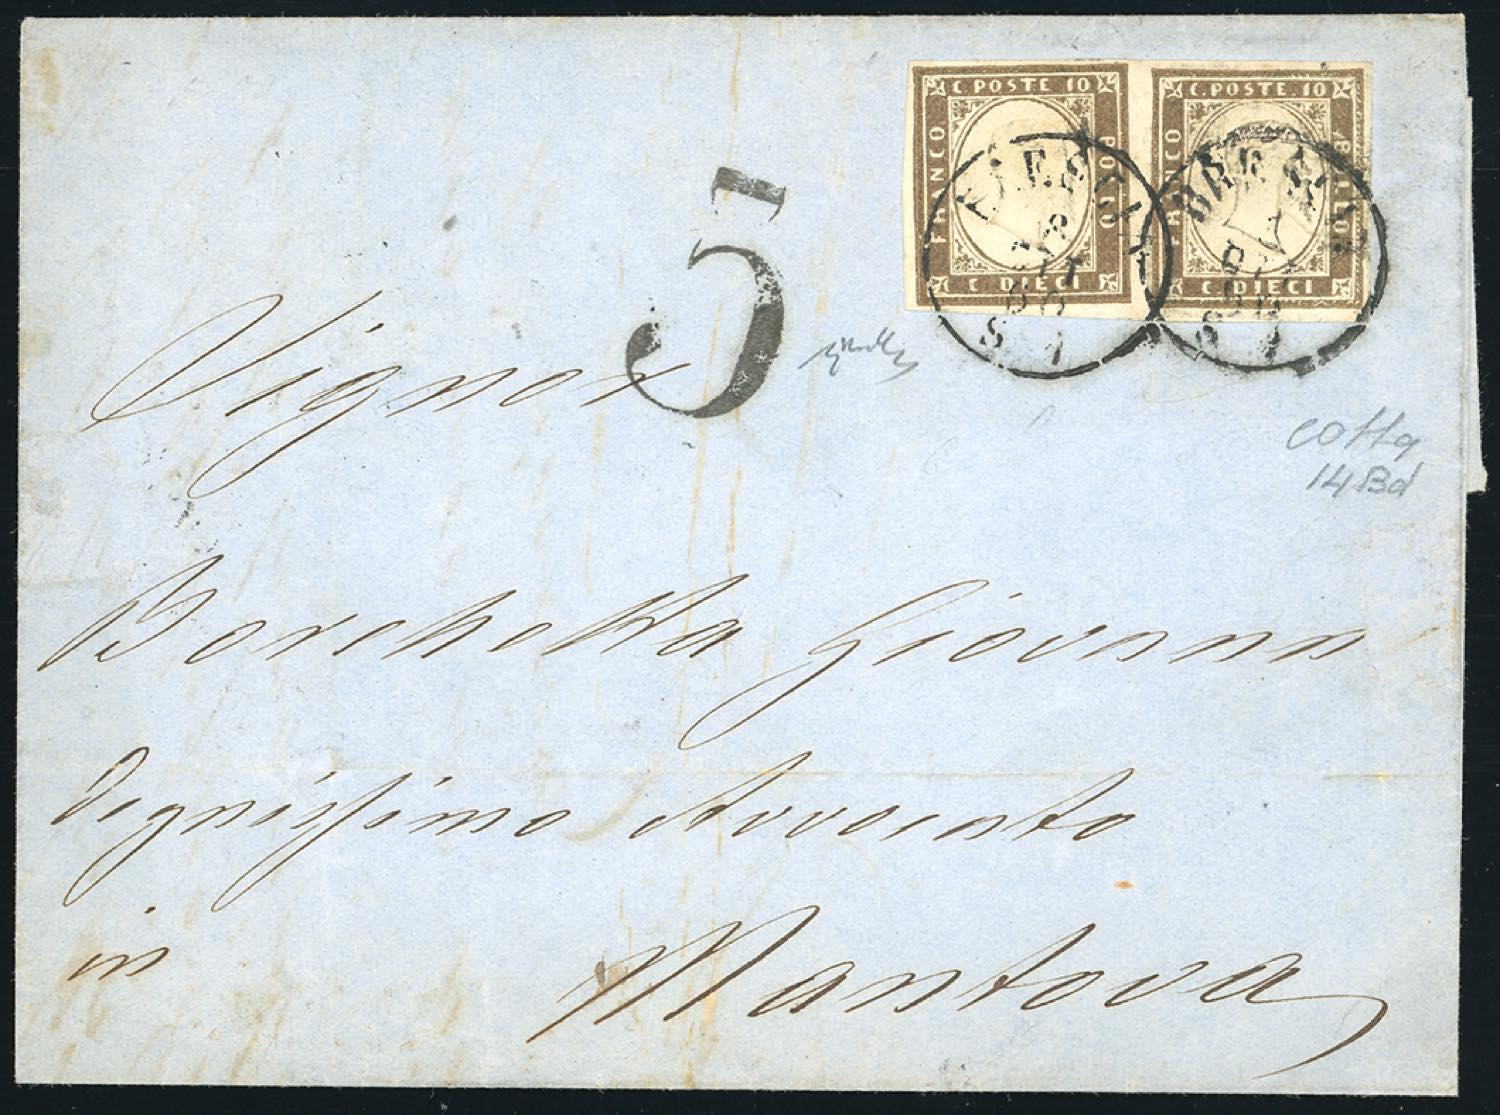 C. POSTE 10
FRANCO
BOLLO
C. DIECI
C. POSTE. 10
FRANCO
BOLLO
C. DIECI
BRESCIA
5
Signor
Borchetta Giovanni
Degnissimo Avvocato
in
Mantova
cotta
14Bd